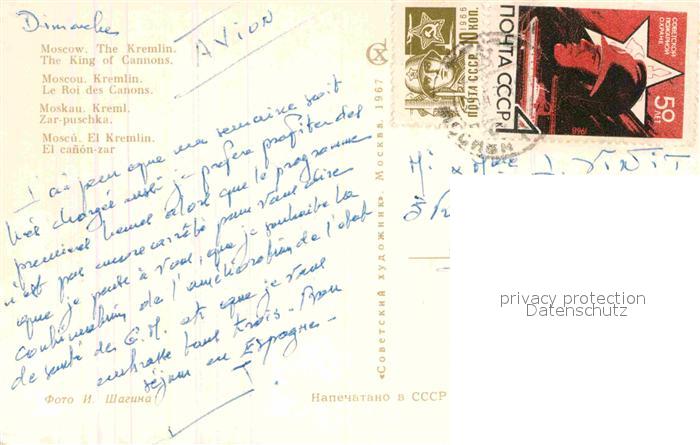 Dimanche
AVION
Moscow. The Kremlin.
The King of Cannons.
Moscou. Kremlin.
Le Roi des Canons.
Moskau. Kreml.
Zar-puschka.
Moscú. El Kremlin.
El cañón-zar
J'ai peur que ma semaine soit
très chargée aussi je préfère profiter des
premières heures alors que le programme
n'est pas encore arrêté pour vous dire
que je pense à vous, que je souhaite la
continuation de l'amélioration de l'état
de santé de G.M. et que je vous
embrasse tous trois. Bon
séjour en Espagne.
J
Фото И. Шагина
«Советский художник». Москва. 1967
Напечатано в СССР
1966
10 КОП.
ПОЧТА СССР
ПОЧТА СССР 4
СОВЕТСКОЙ
ПОЖАРНОЙ
ОХРАНЕ
50
ЛЕТ
1968
M. & Mme J. VINIT
privacy protection
Datenschutz